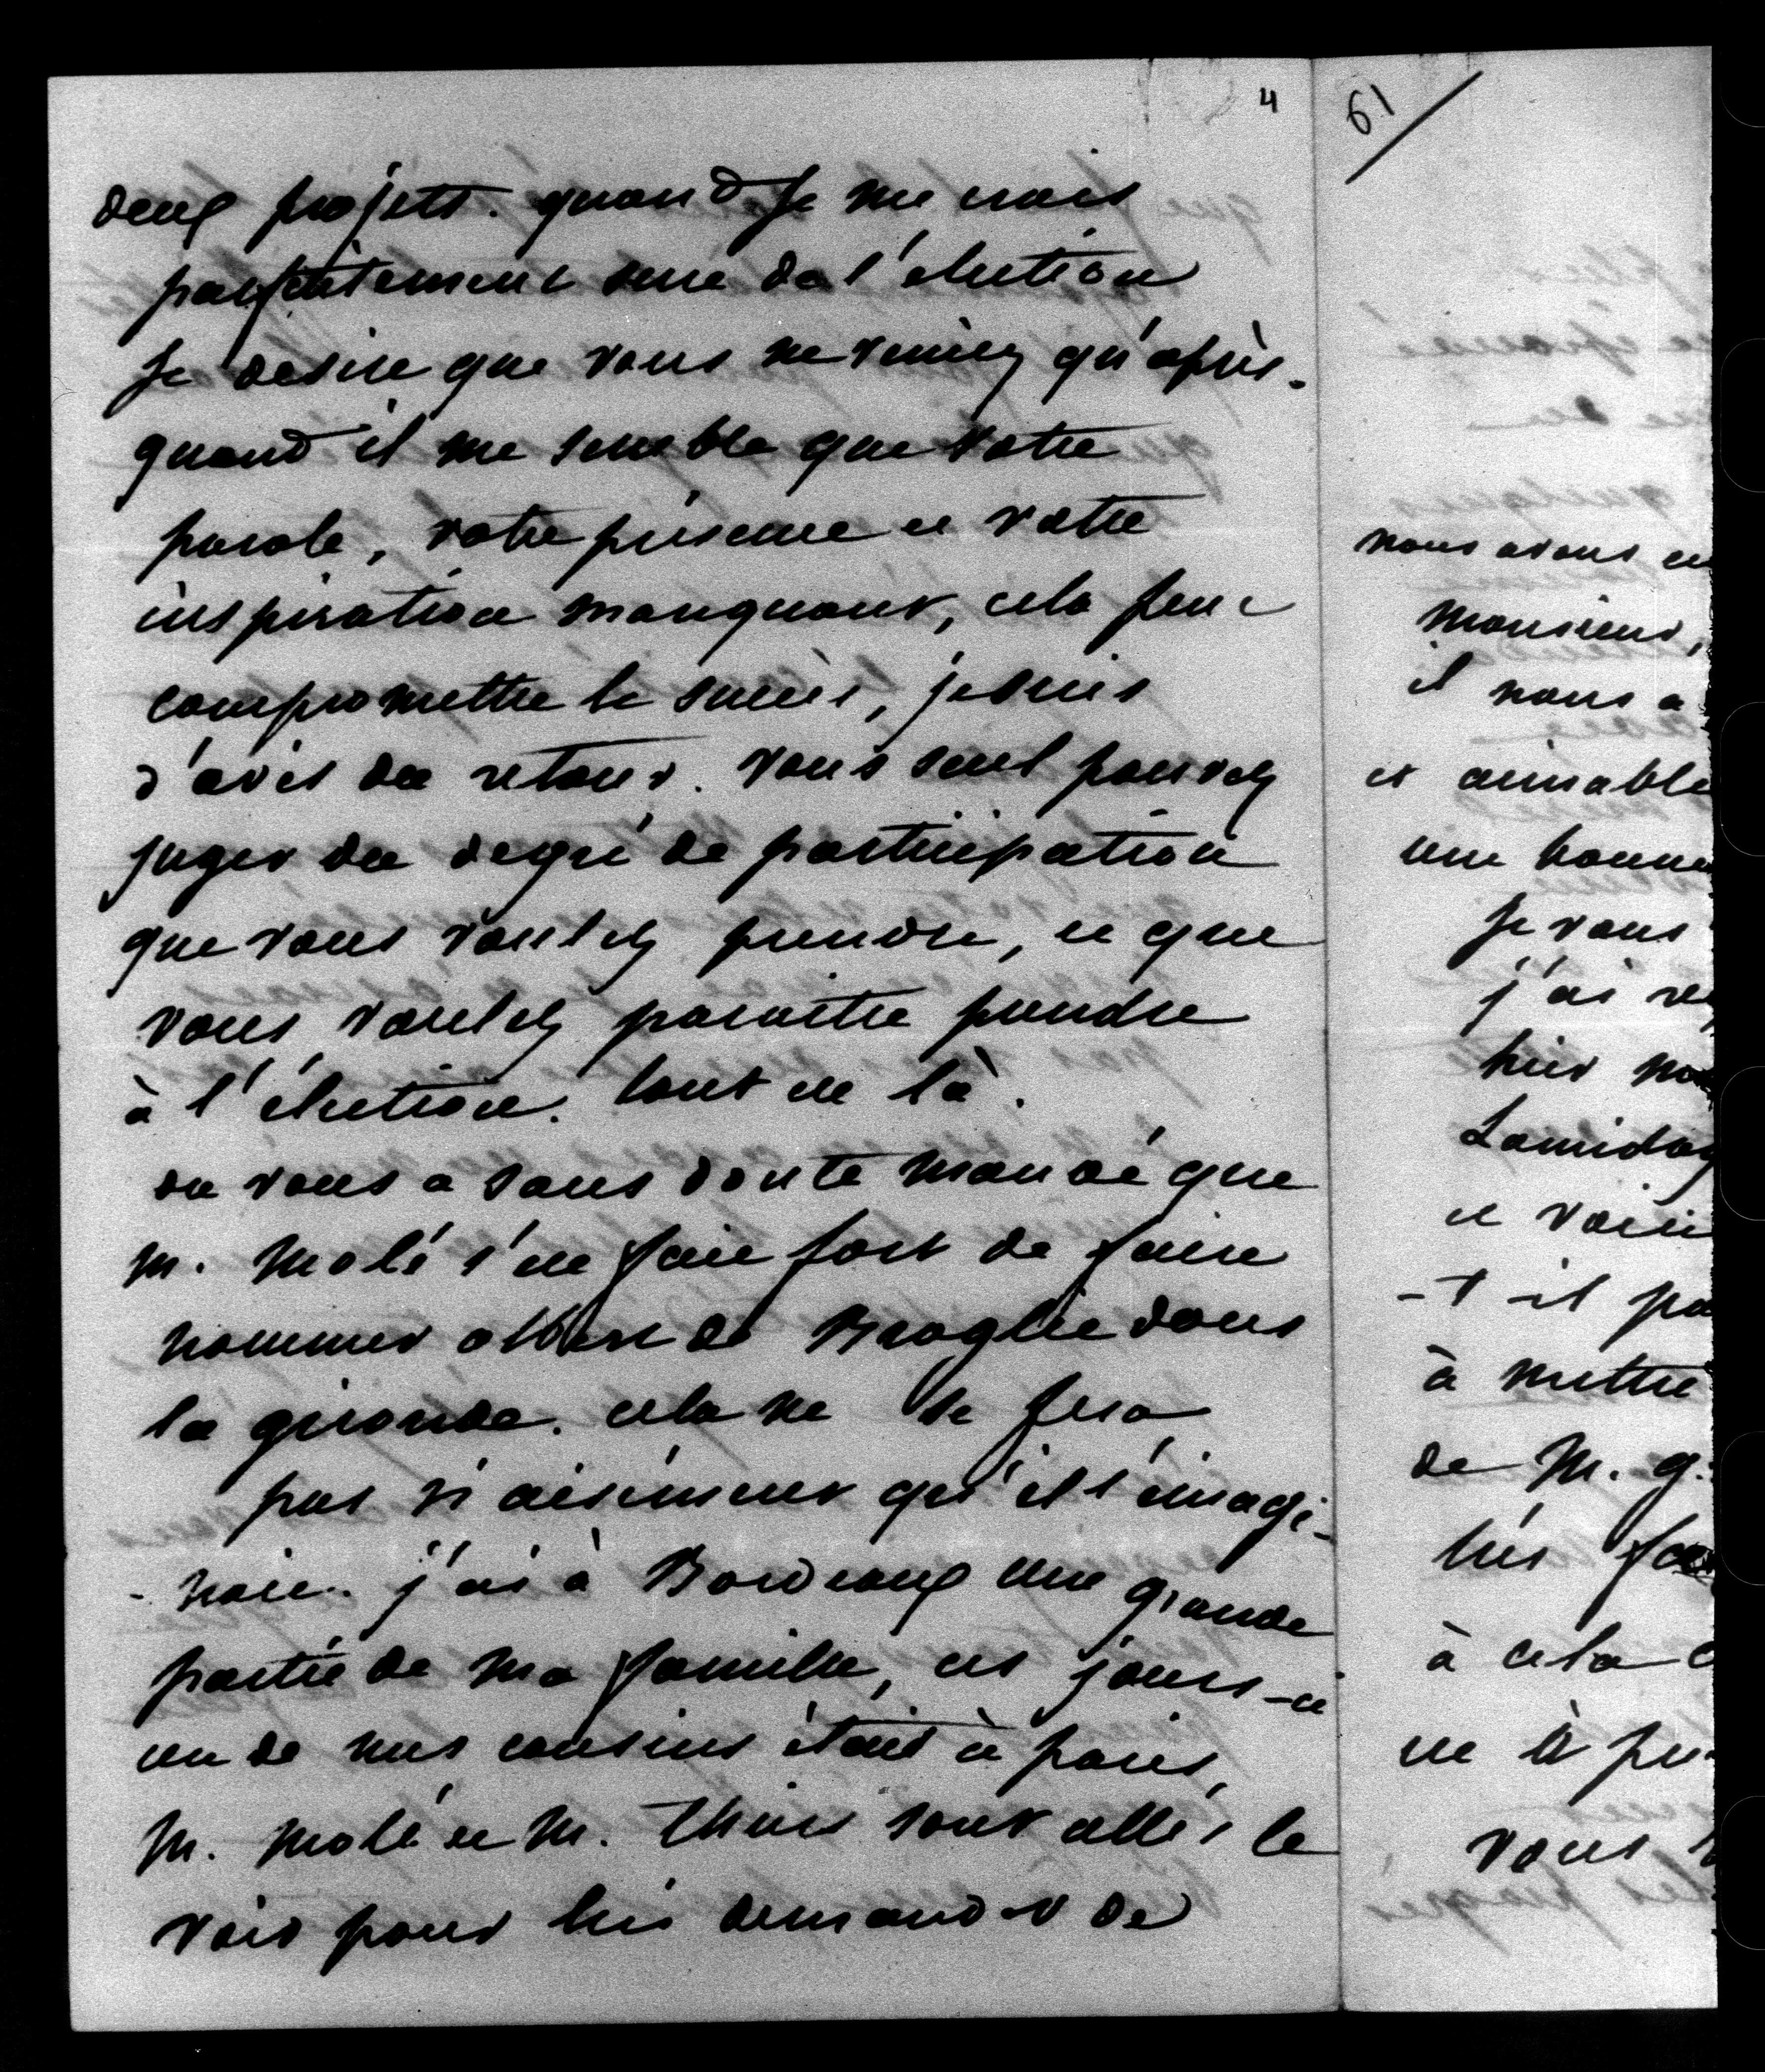 4
deux projets. quand je me crois
parfaitement sure de l'élection
je desire que vous ne veniez qu'après.
quand il me semble que votre
parole, votre présence et votre
inspiration manquant, cela peut
compromettre le succès, je suis
d'avis du retour. vous seul pouvez
juger du degré de participation
que vous voulez prendre, et que
vous voulez paraitre prendre
à l'élection. tout est là.
on vous a sans doute mandé que
M. Molé s'est fait fort de faire
nommer albert de Broglie dans
la gironde. cela ne se fera
pas si aisément qu'il l'imagi-
-nait. j'ai à Bordeaux une grande
partie de ma famille, ces jours-ci
un de mes cousins était à paris,
M. Molé et M. Thiers sont allés le
voir pour lui demander de
61
nous avons eu
Monsieur,
il nous a
et aimable
une bonne
je vous
j'ai re
hier
et voici
-t-il pa
à mettre
de M. g.
à cela
vous